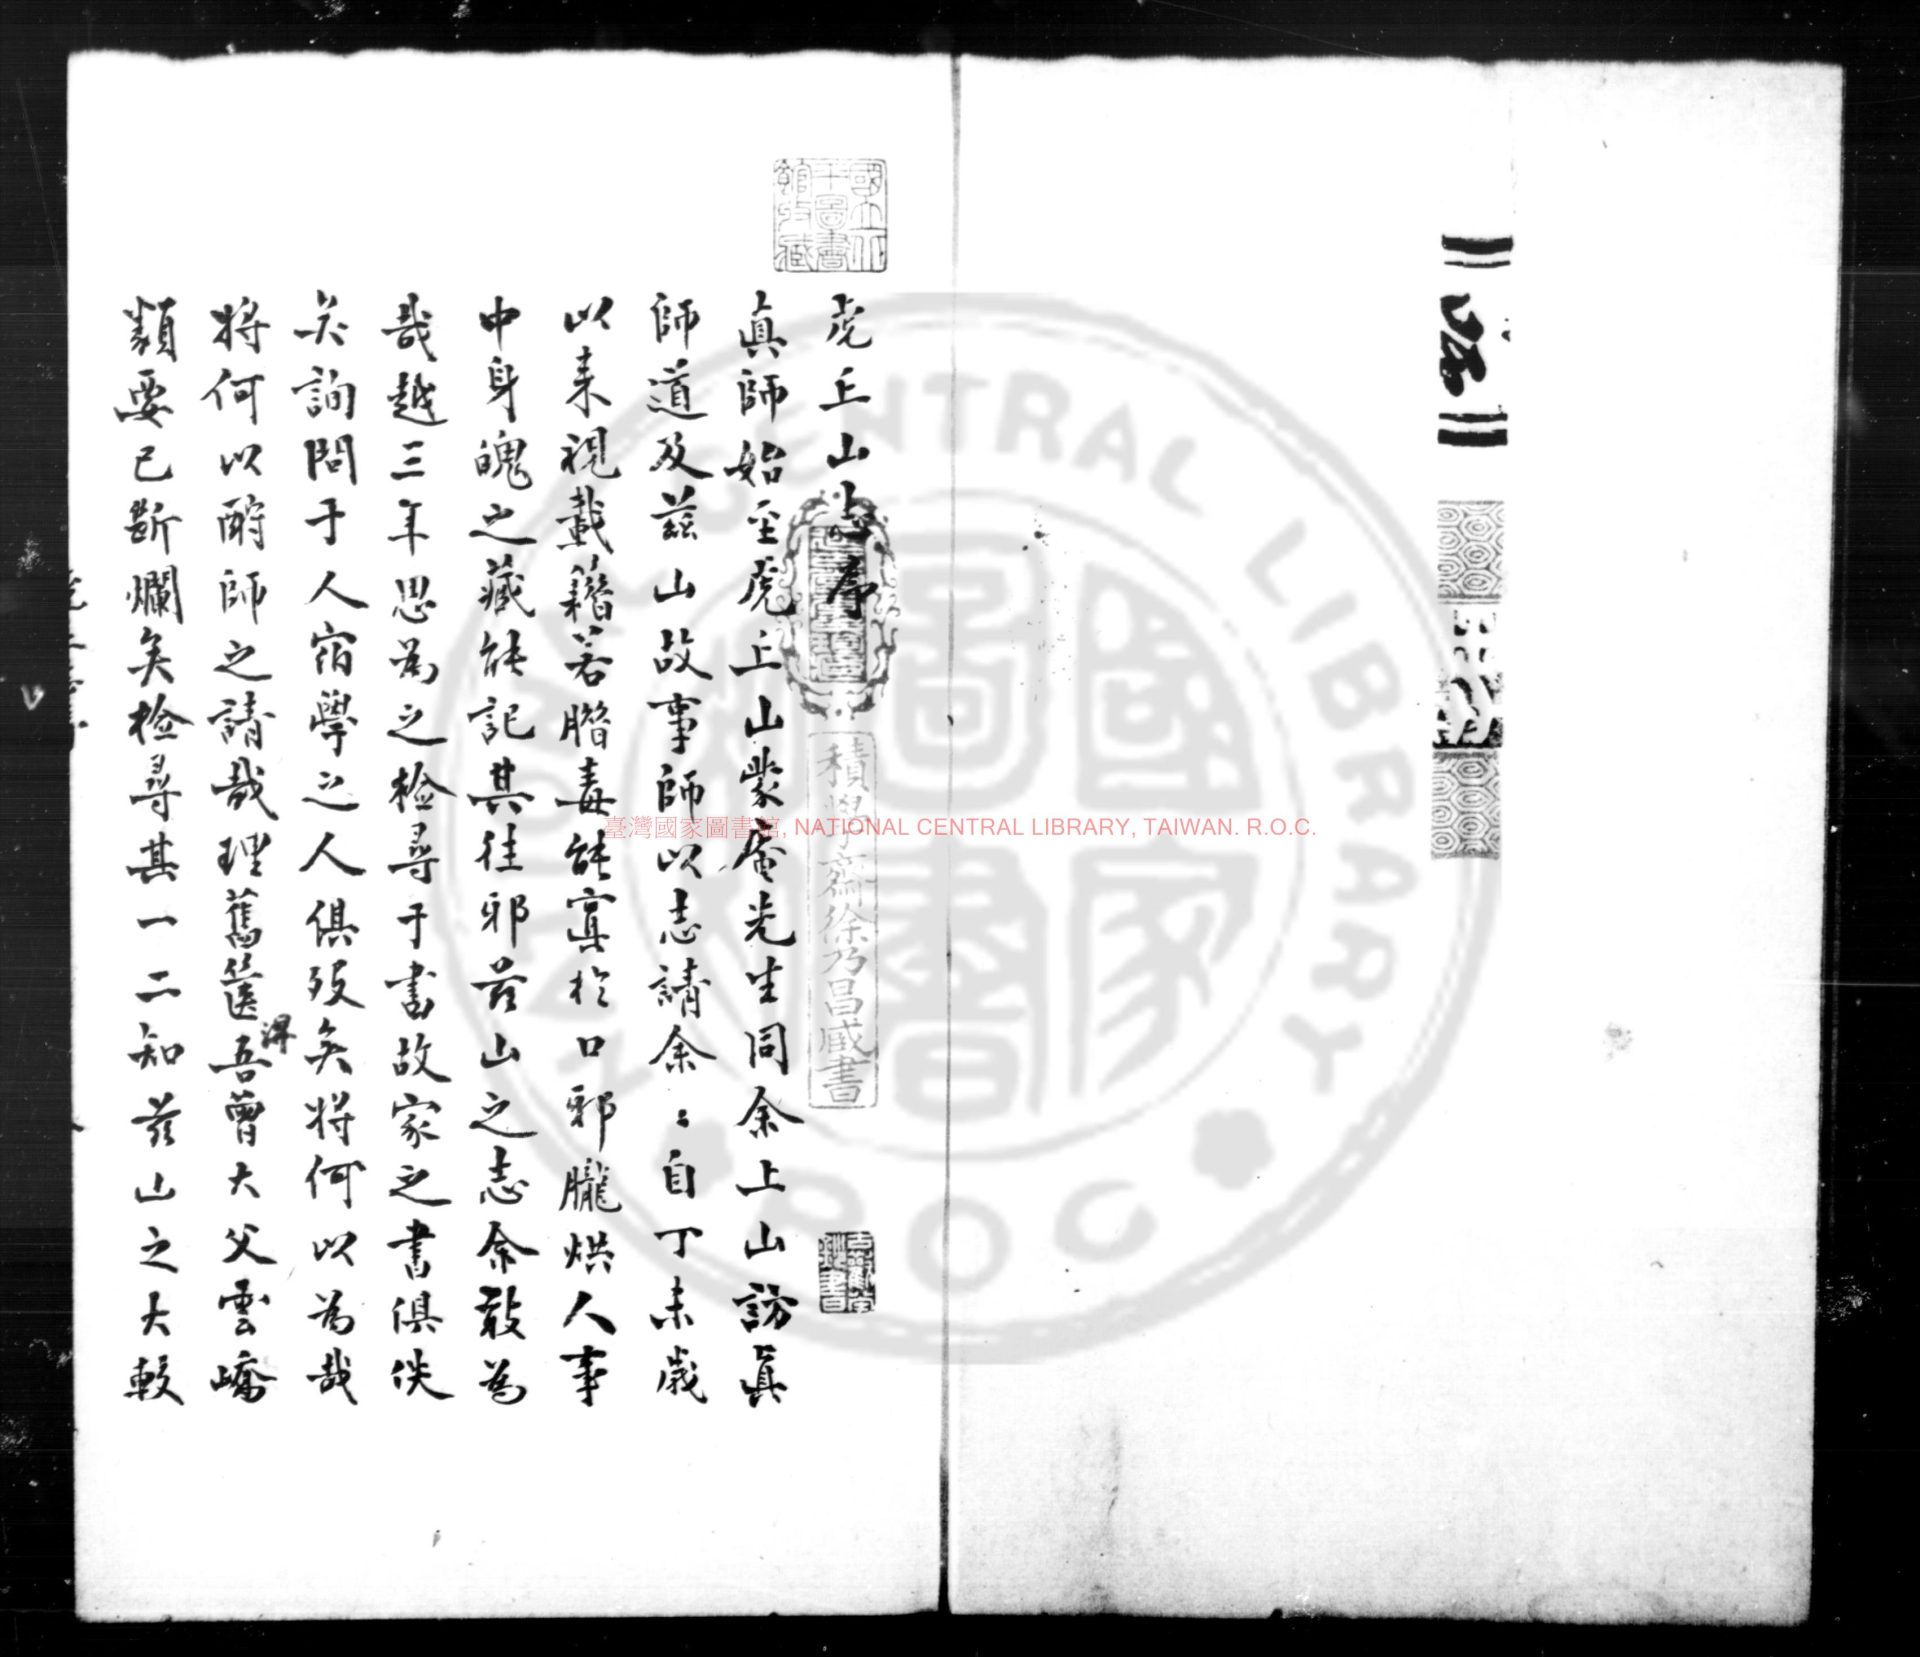 虎丘山志序
眞師始至虎丘山蒙庵先生同余上山訪眞
師道及茲山故事師以志請余〻自丁未歲
以來視載籍若腊毒能寘於口邪朧烘人事
中身魄之藏能記其往邪茲山之志余敢為
哉越三年思為之檢尋于書故家之書俱佚
矣詢問于人宿學之人俱歿矣將何以為哉
將何以酧師之請哉理舊篋得吾曾大父雲嶠
類要已斷爛矣檢尋其一二知茲山之大較
國立北平圖書館收藏
積學齋徐乃昌藏書
臺灣國家圖書館, NATIONAL CENTRAL LIBRARY, TAIWAN. R.O.C.
NATIONAL CENTRAL LIBRARY
ROC
國家圖書